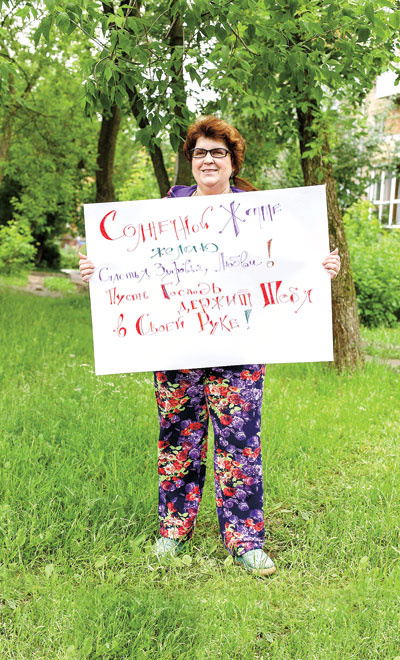 Солнечной Жанне
желаю
Счастья, Здоровья, Любви!
Пусть Господь держит Тебя
в Своей Руке!